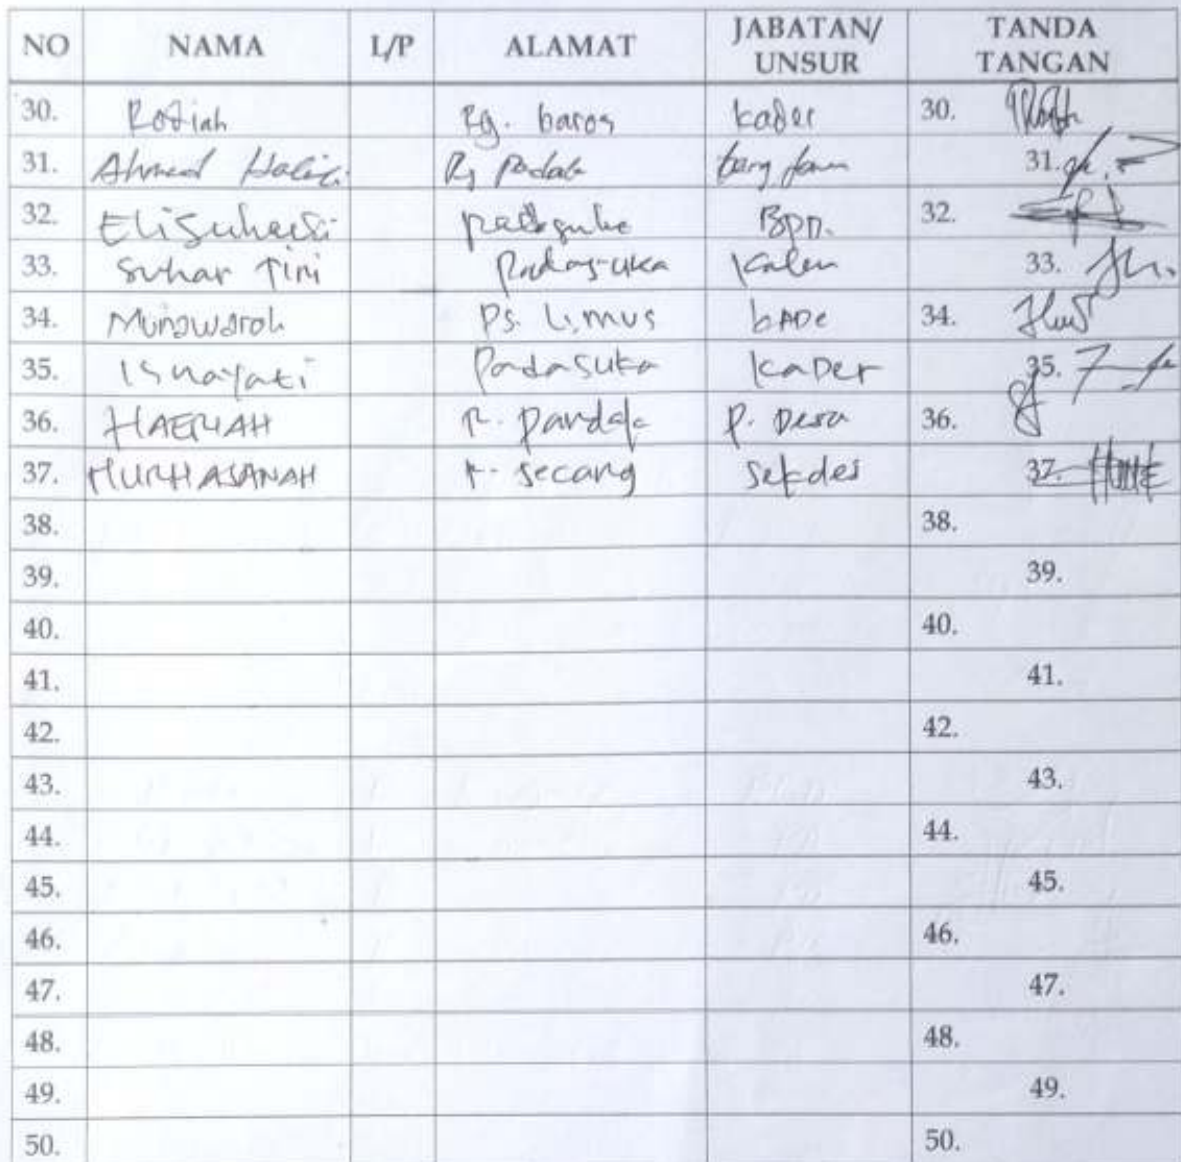 NO NAMA L/P ALAMAT JABATAN/ UNSUR TANDA TANGAN
30. Rodiah Rg. baros kader 30.
31. Ahmad Rg 31.
32. Eli Suhaeti BPD. 32.
33. Suhar Tini Padasuka 33.
34. Munawaroh Ps. Limus 34.
35. Isnayati Padasuka kaDer 35.
36. HAERIAH P. Desa 36.
37. NURHASANAH secang sekdes 37.
38. 38.
39. 39.
40. 40.
41. 41.
42. 42.
43. 43.
44. 44.
45. 45.
46. 46.
47. 47.
48. 48.
49. 49.
50. 50.